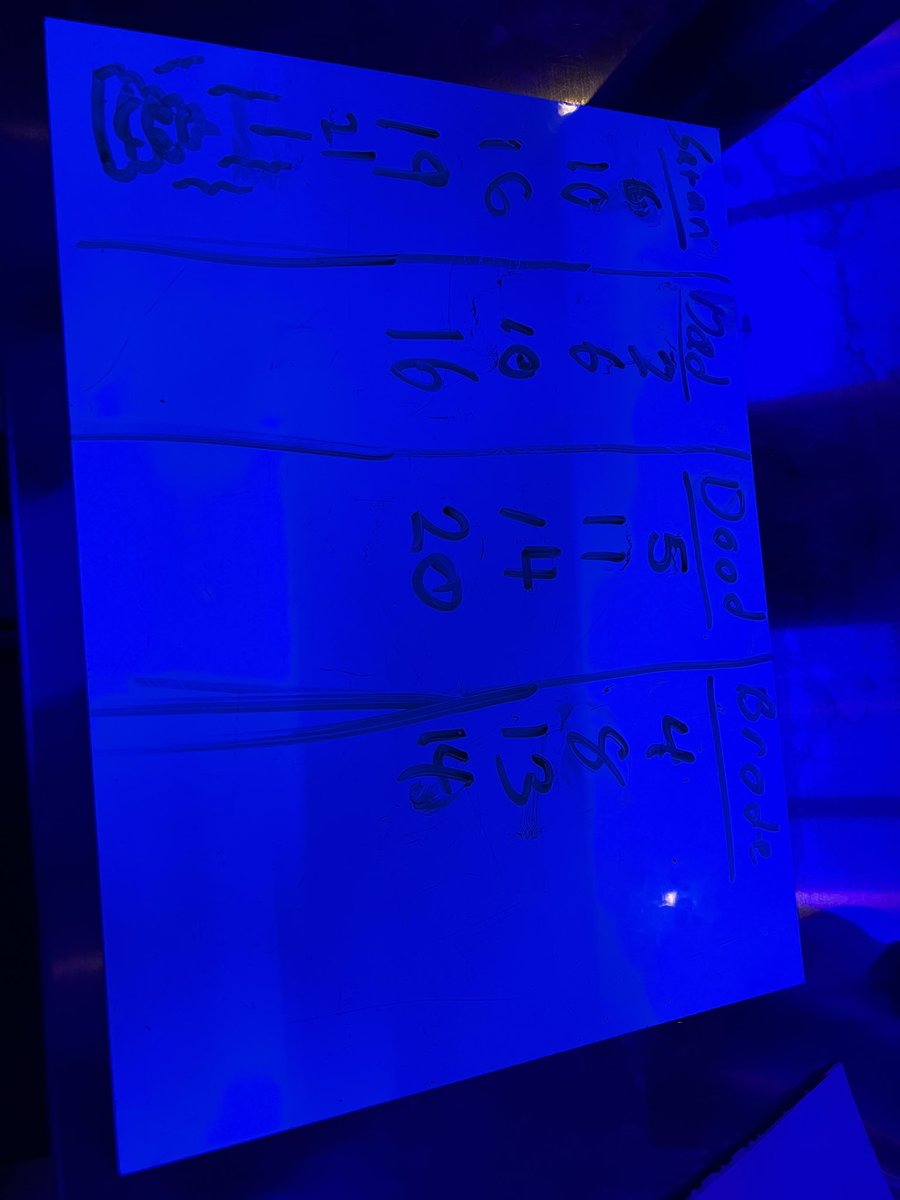 Gran Dad Dood Brode
6 2 5 4
10 6 11 8
16 10 14 13
19 16 20 14
21